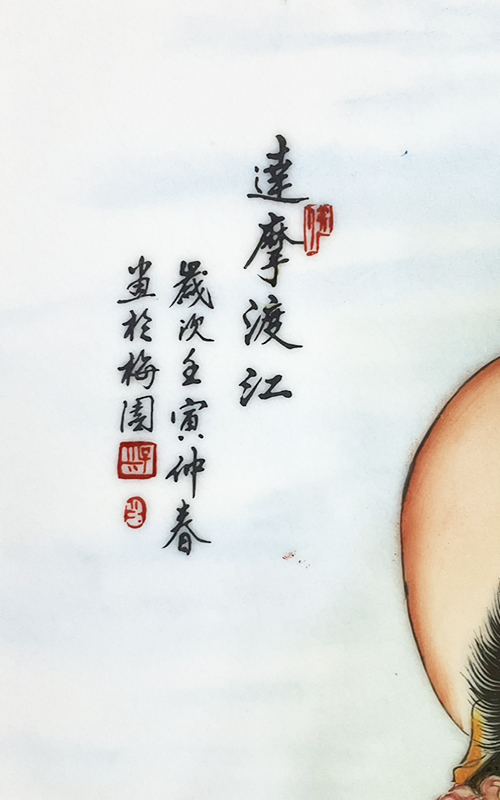 達摩渡江
歲次壬寅仲春
畫於梅園